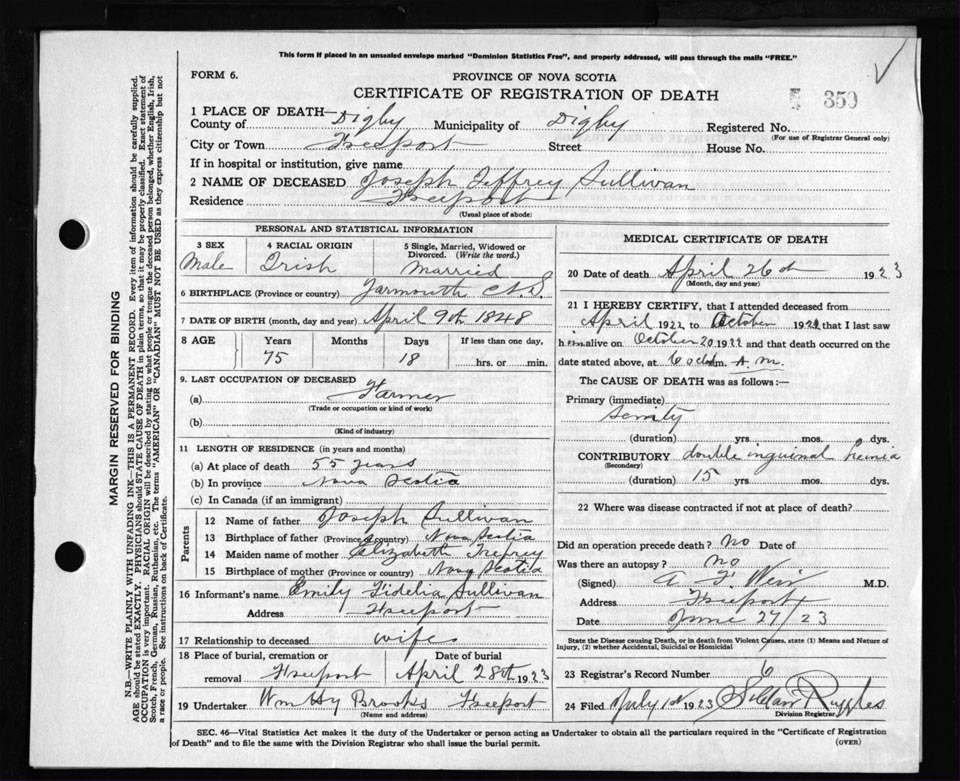 This form if placed in an unsealed envelope marked "Dominion Statistics Free", and properly addressed, will pass through the mails "FREE."
FORM 6.
PROVINCE OF NOVA SCOTIA
CERTIFICATE OF REGISTRATION OF DEATH
350
1 PLACE OF DEATH—
County of Digby Municipality of Digby Registered No.
(For use of Registrar General only)
City or Town Freeport Street House No.
If in hospital or institution, give name
2 NAME OF DECEASED Joseph Jeffrey Sullivan
Residence Freeport
(Usual place of abode)
PERSONAL AND STATISTICAL INFORMATION
3 SEX
Male
4 RACIAL ORIGIN
Irish
5 Single, Married, Widowed or Divorced. (Write the word.)
Married
6 BIRTHPLACE (Province or country) Yarmouth N.S.
7 DATE OF BIRTH (month, day and year) April 9th 1848
8 AGE Years Months Days If less than one day,
75 18 hrs. or min.
9. LAST OCCUPATION OF DECEASED
(a) Farmer
(Trade or occupation or kind of work)
(b)
(Kind of industry)
11 LENGTH OF RESIDENCE (in years and months)
(a) At place of death 55 years
(b) In province Nova Scotia
(c) In Canada (if an immigrant)
Parents
12 Name of father Joseph Sullivan
13 Birthplace of father (Province or country) Nova Scotia
14 Maiden name of mother Elizabeth Trefrey
15 Birthplace of mother (Province or country) Nova Scotia
16 Informant's name Emily Fidelia Sullivan
Address Freeport
17 Relationship to deceased wife
18 Place of burial, cremation or removal Freeport
Date of burial
April 28th 1923
19 Undertaker Wm Hy Brooks Freeport
(Name and address)
MEDICAL CERTIFICATE OF DEATH
20 Date of death April 26th 1923
(Month, day and year)
21 I HEREBY CERTIFY, that I attended deceased from
April 1922 to October 1922 that I last saw
him alive on October 20 1922 and that death occurred on the
date stated above, at 6 m. A.M.
The CAUSE OF DEATH was as follows:—
Primary (immediate)
Senility
(duration) yrs. mos. dys.
CONTRIBUTORY double inguinal hernia
(Secondary)
(duration) 15 yrs. mos. dys.
22 Where was disease contracted if not at place of death?
Did an operation precede death? no Date of
Was there an autopsy? no
(Signed) A F Weir M.D.
Address Freeport
Date June 27/23
State the Disease causing Death, or in death from Violent Causes, state (1) Means and Nature of
Injury, (2) whether Accidental, Suicidal or Homicidal
23 Registrar's Record Number 6
24 Filed July 1st 1923 Ruggles
Division Registrar
SEC. 46—Vital Statistics Act makes it the duty of the Undertaker or person acting as Undertaker to obtain all the particulars required in the "Certificate of Registration
of Death" and to file the same with the Division Registrar who shall issue the burial permit.
(OVER)
MARGIN RESERVED FOR BINDING
N.B.—WRITE PLAINLY WITH UNFADING INK—THIS IS A PERMANENT RECORD. Every item of information should be carefully supplied.
AGE should be stated EXACTLY. PHYSICIANS should STATE CAUSE OF DEATH in plain terms, so that it may be properly classified. Exact statement of
OCCUPATION is very important. RACIAL ORIGIN will be described by stating to what people or tongue the deceased person belonged, whether English, Irish,
Scotch, French, German, Russian, Ruthenian, etc. The terms "AMERICAN" or "CANADIAN" MUST NOT BE USED as they express citizenship but not
a race or people. See instructions on back of Certificate.